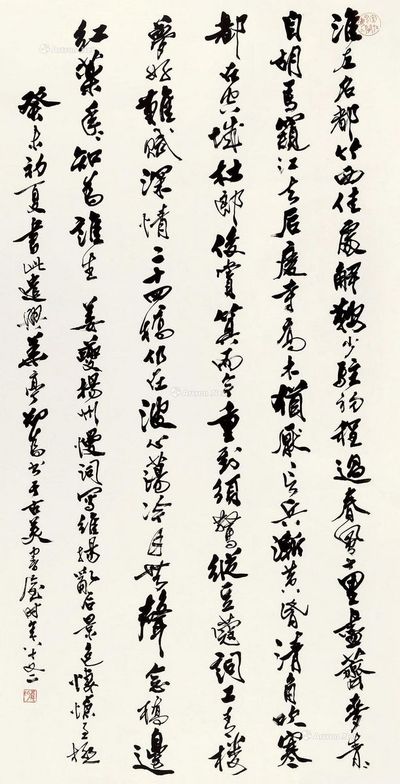 淮左名都竹西佳處解鞍少駐初程過春風十里盡薺麥青青
自胡馬窺江去后廢池喬木猶厭言兵漸黃昏清角吹寒
都在空城杜郎俊賞算而今重到須驚縱豆蔻詞工青樓
夢好難賦深情二十四橋仍在波心蕩冷月無聲念橋邊
紅藥年年知爲誰生 姜夔揚州慢詞寫維揚亂后景色悽愴之極
癸未初夏書此遣興 書 時年八十又二